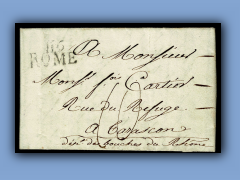 115
ROME
A Monsieur
Mons.r f.ois Cartier
Rue du Refuge
A Tarascon
dép.t des bouches du Rhône